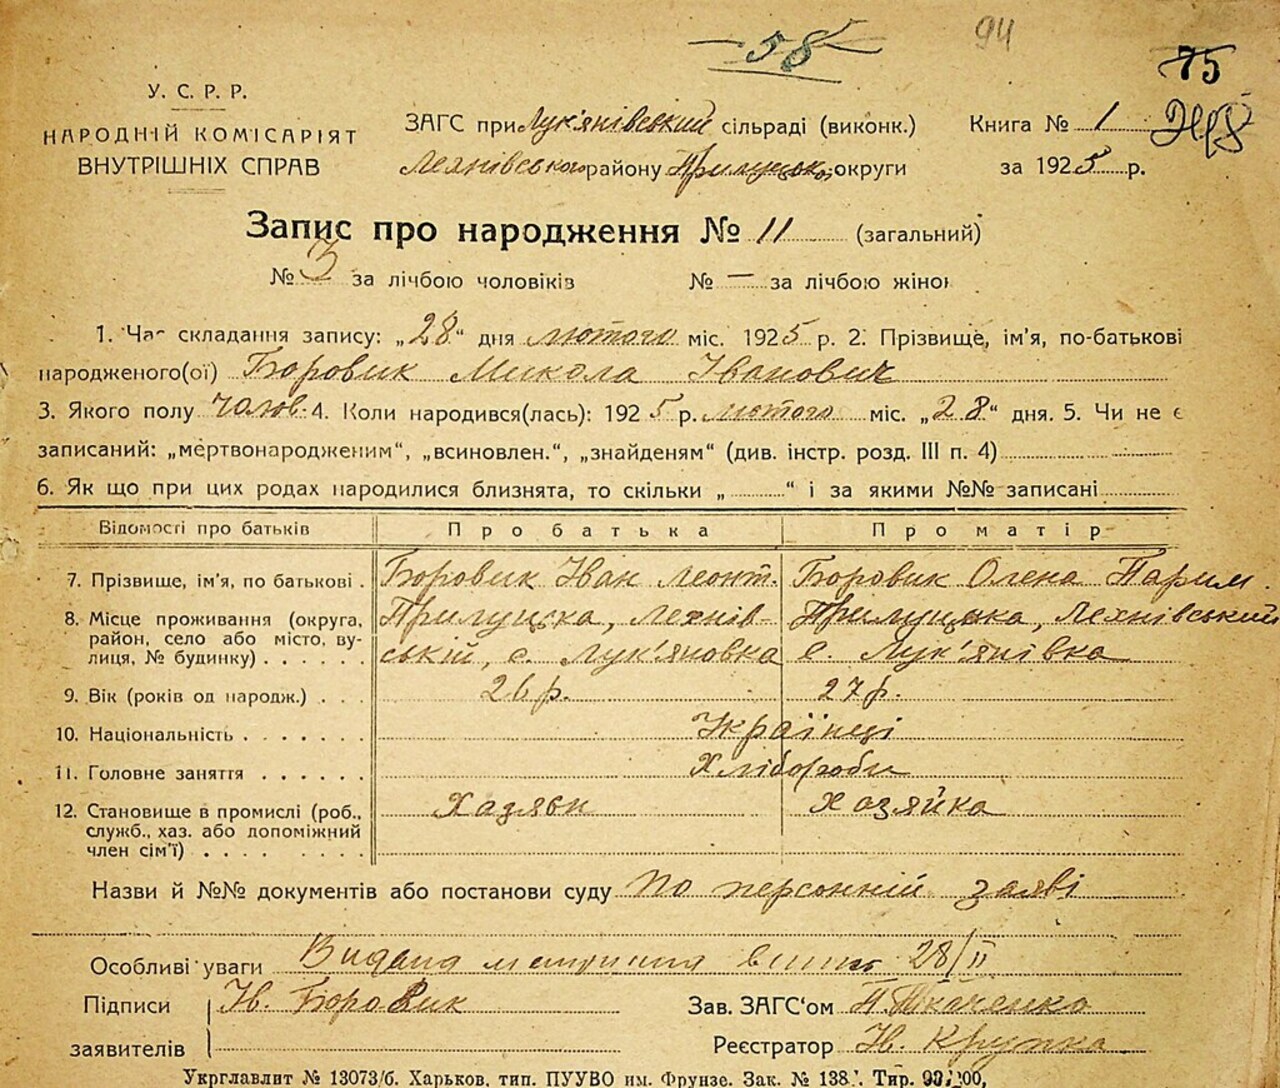 58
94
75
У. С. Р. Р.
НАРОДНІЙ КОМІСАРІЯТ
ВНУТРІШНІХ СПРАВ
ЗАГС при Лук'янівський сільраді (виконк.)
району Прилуцько округи
Книга № 1
за 1925 р.
Запис про народження № 11 (загальний)
№ 3 за лічбою чоловіків № — за лічбою жінок
1. Час складання запису: „28“ дня лютого міс. 1925 р. 2. Прізвище, ім'я, по-батькові
народженого(ої) Боровик Микола Іванович
3. Якого полу чолов. 4. Коли народився(лась): 1925 р. лютого міс. „28“ дня. 5. Чи не є
записаний: „мертвонародженим“, „всиновлен.“, „знайденям“ (див. інстр. розд. III п. 4)
6. Як що при цих родах народилися близнята, то скільки „ “ і за якими №№ записані
Відомості про батьків Про батька Про матір
7. Прізвище, ім'я, по батькові . Боровик Іван Леонт. Боровик Олена Парим.
8. Місце проживання (округа, Прилуцька, Лехнів- Прилуцька, Лехнівський
район, село або місто, ву-
лиця, № будинку) . . . . . . ській, с. Лук'яновка с. Лук'янівка
9. Вік (років од народж.) . . . 26 р. 27 р.
10. Національність . . . . . . . Українці
11. Головне заняття . . . . . . Хлібороби
12. Становище в промислі (роб., Хазяін Хозяйка
служб., хаз. або допоміжний
член сім'ї) . . . . . . . .
Назви й №№ документів або постанови суду по персонній заяві
Особливі уваги Видана 28/II
Підписи Ів. Боровик Зав. ЗАГС‘ом П. Ткаченко
заявителів Реєстратор Ів. Крупка
Укрглавлит № 13073/б. Харьков, тип. ПУУВО им. Фрунзе. Зак. № 138 . Тир.